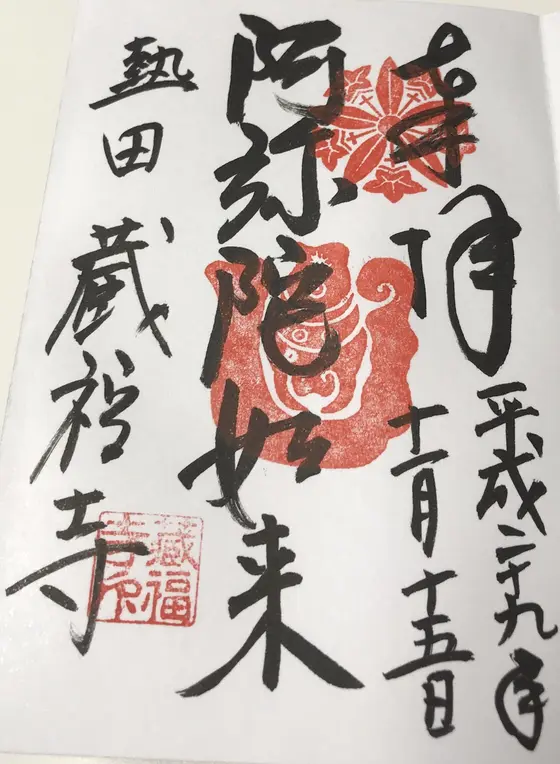 奉拝
平成二十九年
十一月十五日
阿弥陀如来
熱田
蔵福寺
藏福
寺印